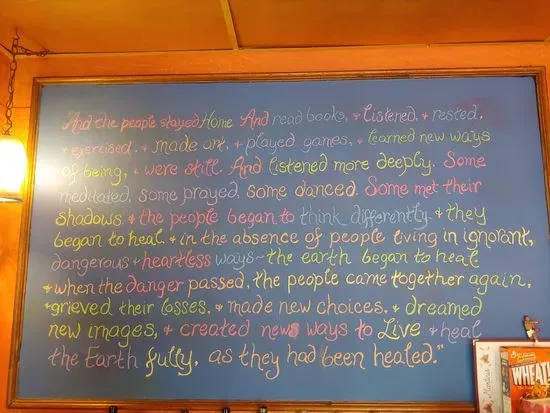 "And the people stayed Home And read books, + Listened, + rested,
+ exercised, + made art, + played games, + learned new ways
of being, + were still. And Listened more deeply. Some
meditated, some prayed, some danced. Some met their
shadows + the people began to think differently + they
began to heal. + in the absence of people living in ignorant,
dangerous + heartless ways~ the earth began to heal
+ when the danger passed, the people came together again,
+ grieved their losses, + made new choices, + dreamed
new images, + created new ways to Live + heal
the Earth fully, as they had been healed."
WHEAT